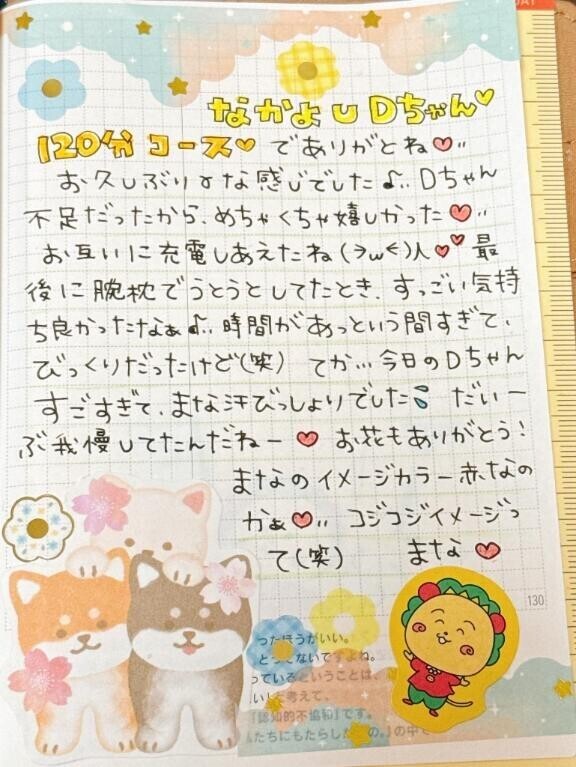 なかよしDちゃん♡
120分コース♡でありがとね♡‥
お久しぶりɤな感じでした♪‥Dちゃん
不足だったから、めちゃくちゃ嬉しかった♡‥
お互いに充電しあえたね(>ω<)人♡♡ 最
後に腕枕でうとうとしてたとき、すっごい気持
ち良かったなぁ♪‥時間があっという間すぎて、
びっくりだったけど(笑) てか…今日のDちゃん
すごすぎて、まな汗びっしょりでした💦 だいー
ぶ我慢してたんだねー♡ お花もありがとう!
まなのイメージカラー赤なの
かぁ♡‥ コジコジイメージっ
て(笑) まな♡
130
ったほうがいい。
ないですよね。
っているということは、
い」と考えて、
「認知的不協和」です。
たちにもたらした
の。」の中で